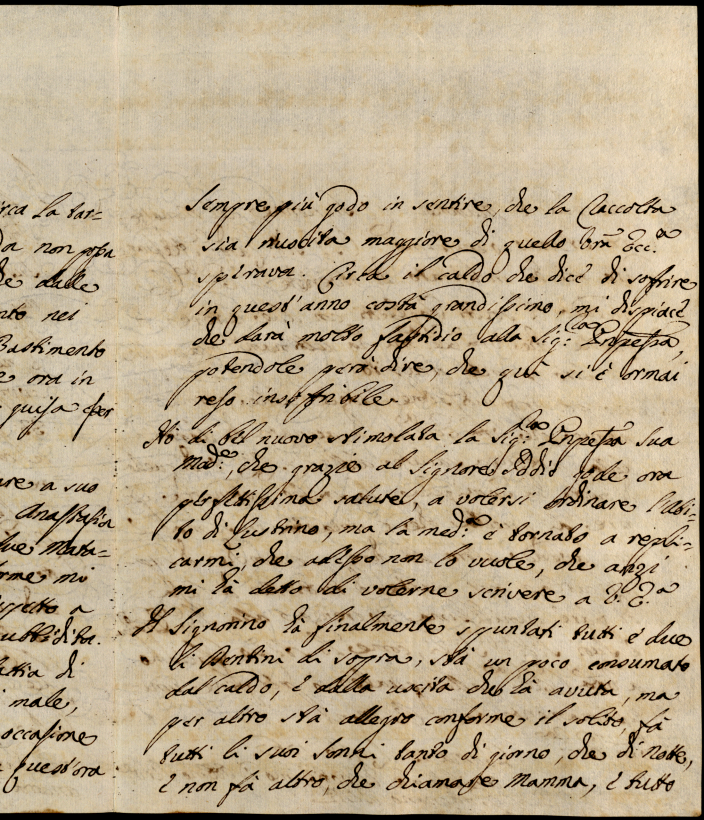 rca la tar=
da non possa
he dalle
nto nei
Bastimento
e ora in
guisa per
are a suo
Anastasia
due mata=
orme mi
spetto a
ubbidita.
lattia di
i male,
occasione
quest'ora
Sempre più godo in sentire, che la Raccolta
sia riuscita maggiore di quello Vra Ecc.a
sperava. Circa il caldo che dice di soffrire
in quest'anno costà grandissimo, mi dispiace
che darà molto fastidio alla Sig.ra Pnpessa,
potendole però dire, che quà si è ormai
reso insoffribile.
Hò di bel nuovo stimolata la Sig.ra Pnpessa sua
Mad.e, che grazie al Signore Iddio gode ora
perfettissima salute, a volersi ordinare l'Abi=
to di Lustrino, ma la med.ma è tornato a repli=
carmi, che adesso non lo vuole, che anzi
mi hà detto di volerne scrivere a V. E.a
Il Signorino hà finalmente spuntati tutti e due
li Dentini di sopra, stà un poco consumato
dal caldo, e dalla uscita che hà avuta, ma
per altro stà allegro conforme il solito, fà
tutti li suoi sonni tanto di giorno, che di notte,
e non fà altro, che chiamare Mamma, e tutto